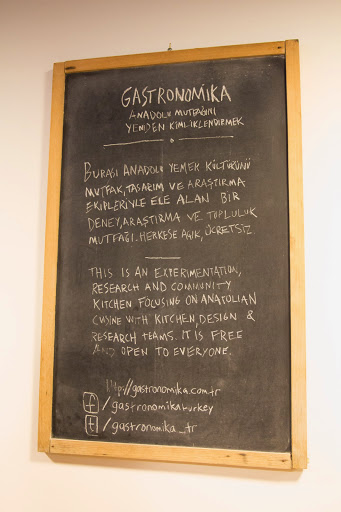 GASTRONOMIKA
ANADOLU MUTFAĞINI
YENİDEN KİMLİKLENDİRMEK
BURASI ANADOLU YEMEK KÜLTÜRÜNÜ
MUTFAK, TASARIM VE ARAŞTIRMA
EKİPLERİYLE ELE ALAN BİR
DENEY, ARAŞTIRMA VE TOPLULUK
MUTFAĞI. HERKESE AÇIK, ÜCRETSİZ.
THIS IS AN EXPERIMENTATION,
RESEARCH AND COMMUNITY
KITCHEN FOCUSING ON ANATOLIAN
CUISINE WITH KITCHEN, DESIGN &
RESEARCH TEAMS. IT IS FREE
AND OPEN TO EVERYONE.
http://gastronomika.com.tr
f /gastronomikaturkey
t /gastronomika_tr